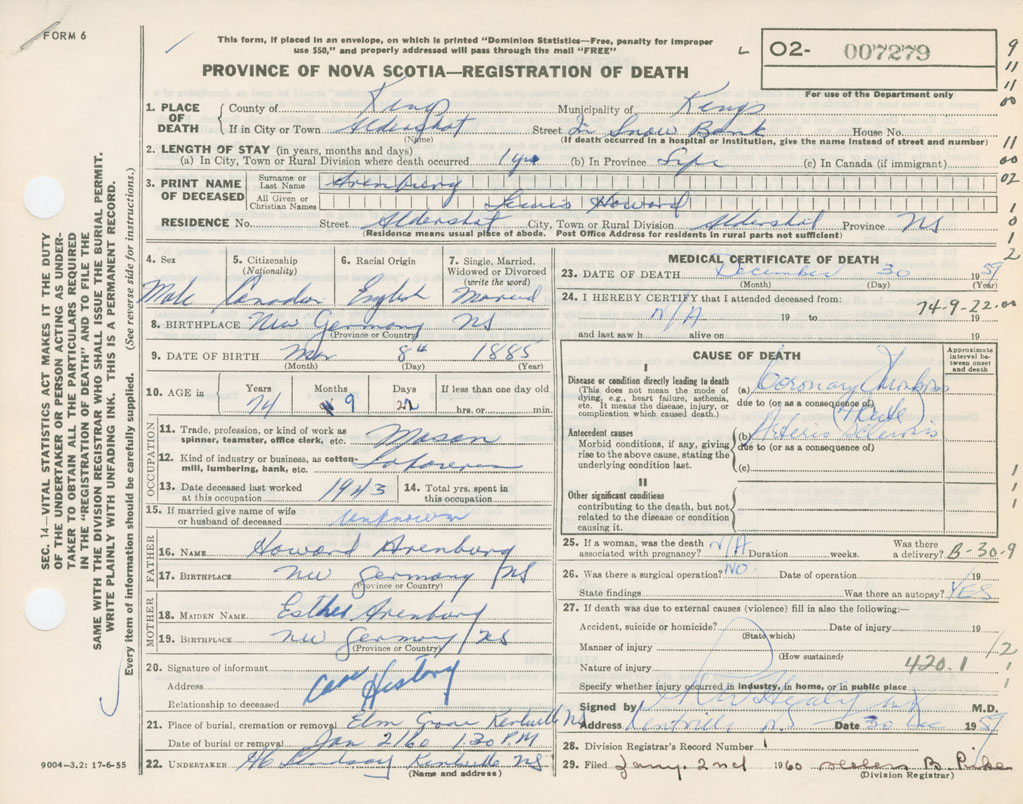 FORM 6
This form, if placed in an envelope, on which is printed "Dominion Statistics—Free, penalty for improper
use $50," and properly addressed will pass through the mail "FREE"
PROVINCE OF NOVA SCOTIA—REGISTRATION OF DEATH
02- 007279
For use of the Department only
1. PLACE OF DEATH
County of Kings Municipality of Kings
If in City or Town Aldershot Street In Snow Bank House No.
(Name) (If death occurred in a hospital or institution, give the name instead of street and number)
2. LENGTH OF STAY (in years, months and days)
(a) In City, Town or Rural Division where death occurred 1 yr (b) In Province Life (c) In Canada (if immigrant)
3. PRINT NAME OF DECEASED
Surname or Last Name Arenburg
All Given or Christian Names Lewis Howard
RESIDENCE No. Street Aldershot City, Town or Rural Division Aldershot Province NS
(Residence means usual place of abode. Post Office Address for residents in rural parts not sufficient)
4. Sex Male
5. Citizenship (Nationality) Canadian
6. Racial Origin English
7. Single, Married, Widowed or Divorced (write the word) Married
8. BIRTHPLACE New Germany NS
(Province or Country)
9. DATE OF BIRTH Mar 8th 1885
(Month) (Day) (Year)
10. AGE in Years 74 Months 9 Days 22 If less than one day old hrs. or min.
OCCUPATION
11. Trade, profession, or kind of work as spinner, teamster, office clerk, etc. Mason
12. Kind of industry or business, as cotton-mill, lumbering, bank, etc.
13. Date deceased last worked at this occupation 1943
14. Total yrs. spent in this occupation
15. If married give name of wife or husband of deceased Unknown
FATHER
16. NAME Howard Arenburg
17. BIRTHPLACE New Germany NS
(Province or Country)
MOTHER
18. MAIDEN NAME Esther Arenburg
19. BIRTHPLACE New Germany NS
(Province or Country)
20. Signature of informant
Address Case History
Relationship to deceased
21. Place of burial, cremation or removal Elm Grove Kentville NS
Date of burial or removal Jan 2/60 1.30 P.M
22. UNDERTAKER Lindsay Kentville NS
(Name and address)
MEDICAL CERTIFICATE OF DEATH
23. DATE OF DEATH December 30 1959
(Month) (Day) (Year)
24. I HEREBY CERTIFY that I attended deceased from:
N/A 19 to 19
74-9-22.00
and last saw h alive on 19
CAUSE OF DEATH
Approximate interval between onset and death
I
Disease or condition directly leading to death
(This does not mean the mode of dying, e.g., heart failure, asthenia, etc. It means the disease, injury, or complication which caused death.)
(a) Coronary Thrombosis
due to (or as a consequence of) Acute
Antecedent causes
Morbid conditions, if any, giving rise to the above cause, stating the underlying condition last.
(b) Arterio Sclerosis
due to (or as a consequence of)
(c)
II
Other significant conditions
contributing to the death, but not related to the disease or condition causing it.
25. If a woman, was the death associated with pregnancy? N/A Duration weeks. Was there a delivery? B-30-9
26. Was there a surgical operation? NO Date of operation 19
State findings Was there an autopsy? YES
27. If death was due to external causes (violence) fill in also the following:—
Accident, suicide or homicide? Date of injury 19
(State which)
Manner of injury
(How sustained)
Nature of injury 420.1
Specify whether injury occurred in industry, in home, or in public place
Signed by M.D.
Address Kentville NS Date 30 Dec 1959
28. Division Registrar's Record Number 1
29. Filed Jany. 2nd 1960 Helen B. Pike
(Division Registrar)
SEC. 14—VITAL STATISTICS ACT MAKES IT THE DUTY
OF THE UNDERTAKER OR PERSON ACTING AS UNDER-
TAKER TO OBTAIN ALL THE PARTICULARS REQUIRED
IN THE "REGISTRATION OF DEATH" AND TO FILE THE
SAME WITH THE DIVISION REGISTRAR WHO SHALL ISSUE THE BURIAL PERMIT.
WRITE PLAINLY WITH UNFADING INK. THIS IS A PERMANENT RECORD.
Every item of information should be carefully supplied. (See reverse side for instructions.)
9004-3.2: 17-6-55
9
11
11
00
11
00
02
1
0
1
2
1
1
1
12
1
1